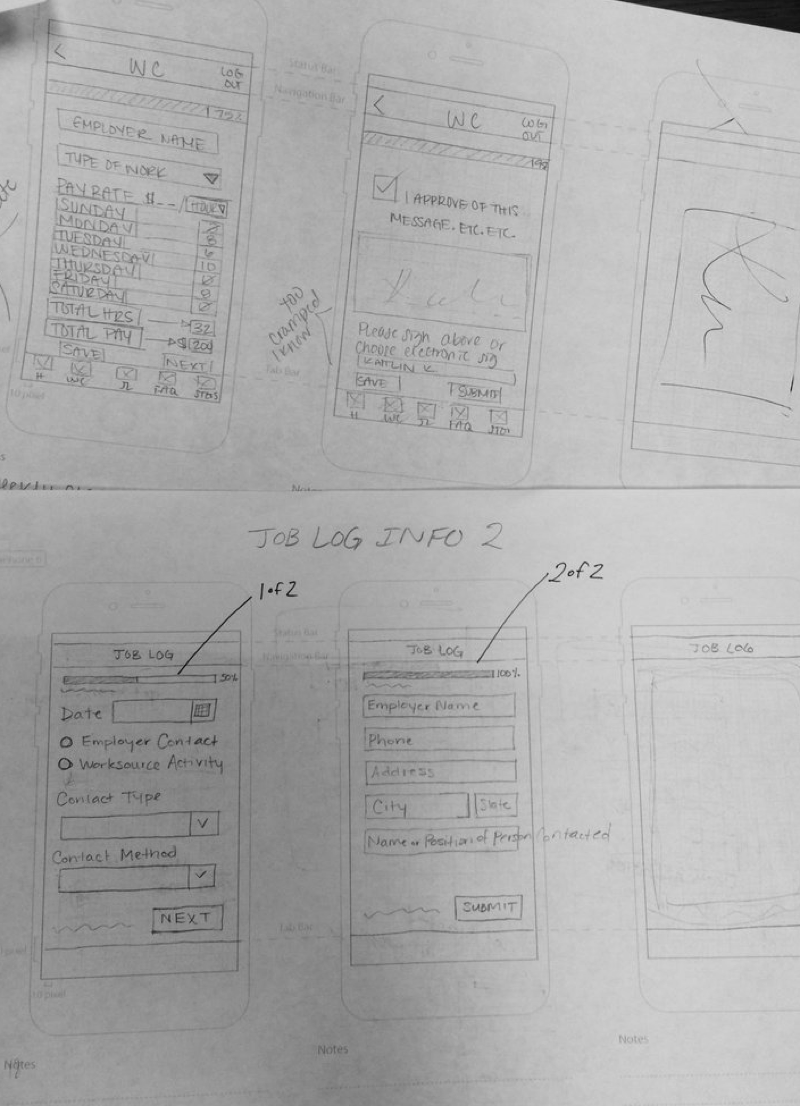 <
WC
LOG
OUT
75%
EMPLOYER NAME
TYPE OF WORK
PAY RATE $ _ _ / HOUR
SUNDAY
MONDAY 8
TUESDAY 6
WEDNESDAY 10
THURSDAY Ø
FRIDAY 9
SATURDAY Ø
TOTAL HRS 32
TOTAL PAY $ 200
SAVE NEXT
H WC JL FAQ
10 pixel
Status Bar
Navigation Bar
<
WC
LOG
OUT
I APPROVE OF THIS
MESSAGE. ETC. ETC.
Please sign above or
choose electronic sig
KAITLIN K
SAVE SUBMIT
H WC JL FAQ
too
cramped
I know
Tab Bar
JOB LOG INFO 2
1 of 2
2 of 2
Status Bar
Navigation Bar
JOB LOG
50%
Date
Employer Contact
Worksource Activity
Contact Type
Contact Method
NEXT
10 pixel
Notes
JOB LOG
100%
Employer Name
Phone
Address
City State
Name or Position of Person Contacted
SUBMIT
Tab Bar
Notes
JOB LOG
Notes